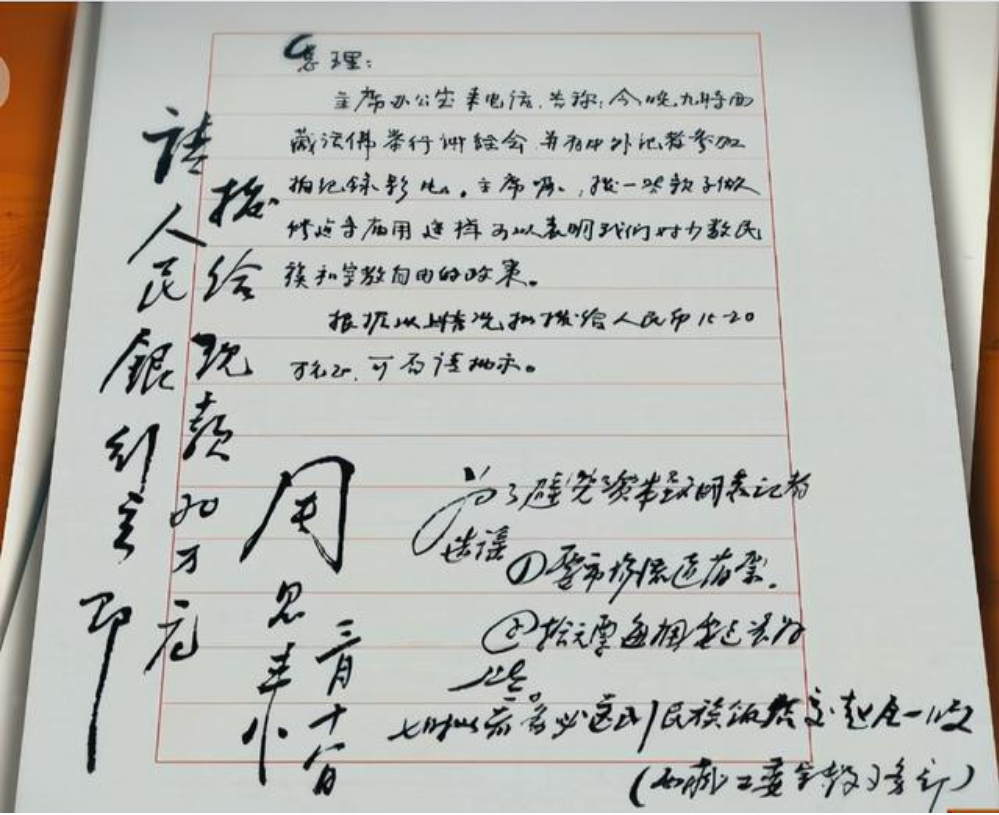 总理：
主席办公室来电话告称：今晚九时西
藏活佛举行讲经会 并有中外记者参加
拍记录影片。主席嘱，拨一些款子做
修适寺庙用 这样可以表明我们对少数民
族和宗教自由的政策。
根据以上情况拟拨给人民币15-20
万元正，可否请批示。
請人民銀行立即
拨给现款20万元
周恩来
三月十八日
为了避免资本主义国家记者
造谣
①要市场流通旧票。
②拾元票每捆要包装好
一些。
七时 务必送到民族饭店交赵全一收
(西藏工委宗教事务部)